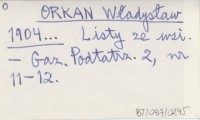 ORKAN Władysław
1904... Listy ze wsi.
— Gaz. Podtatrz. 2, nr
11-12.
87/087/0295